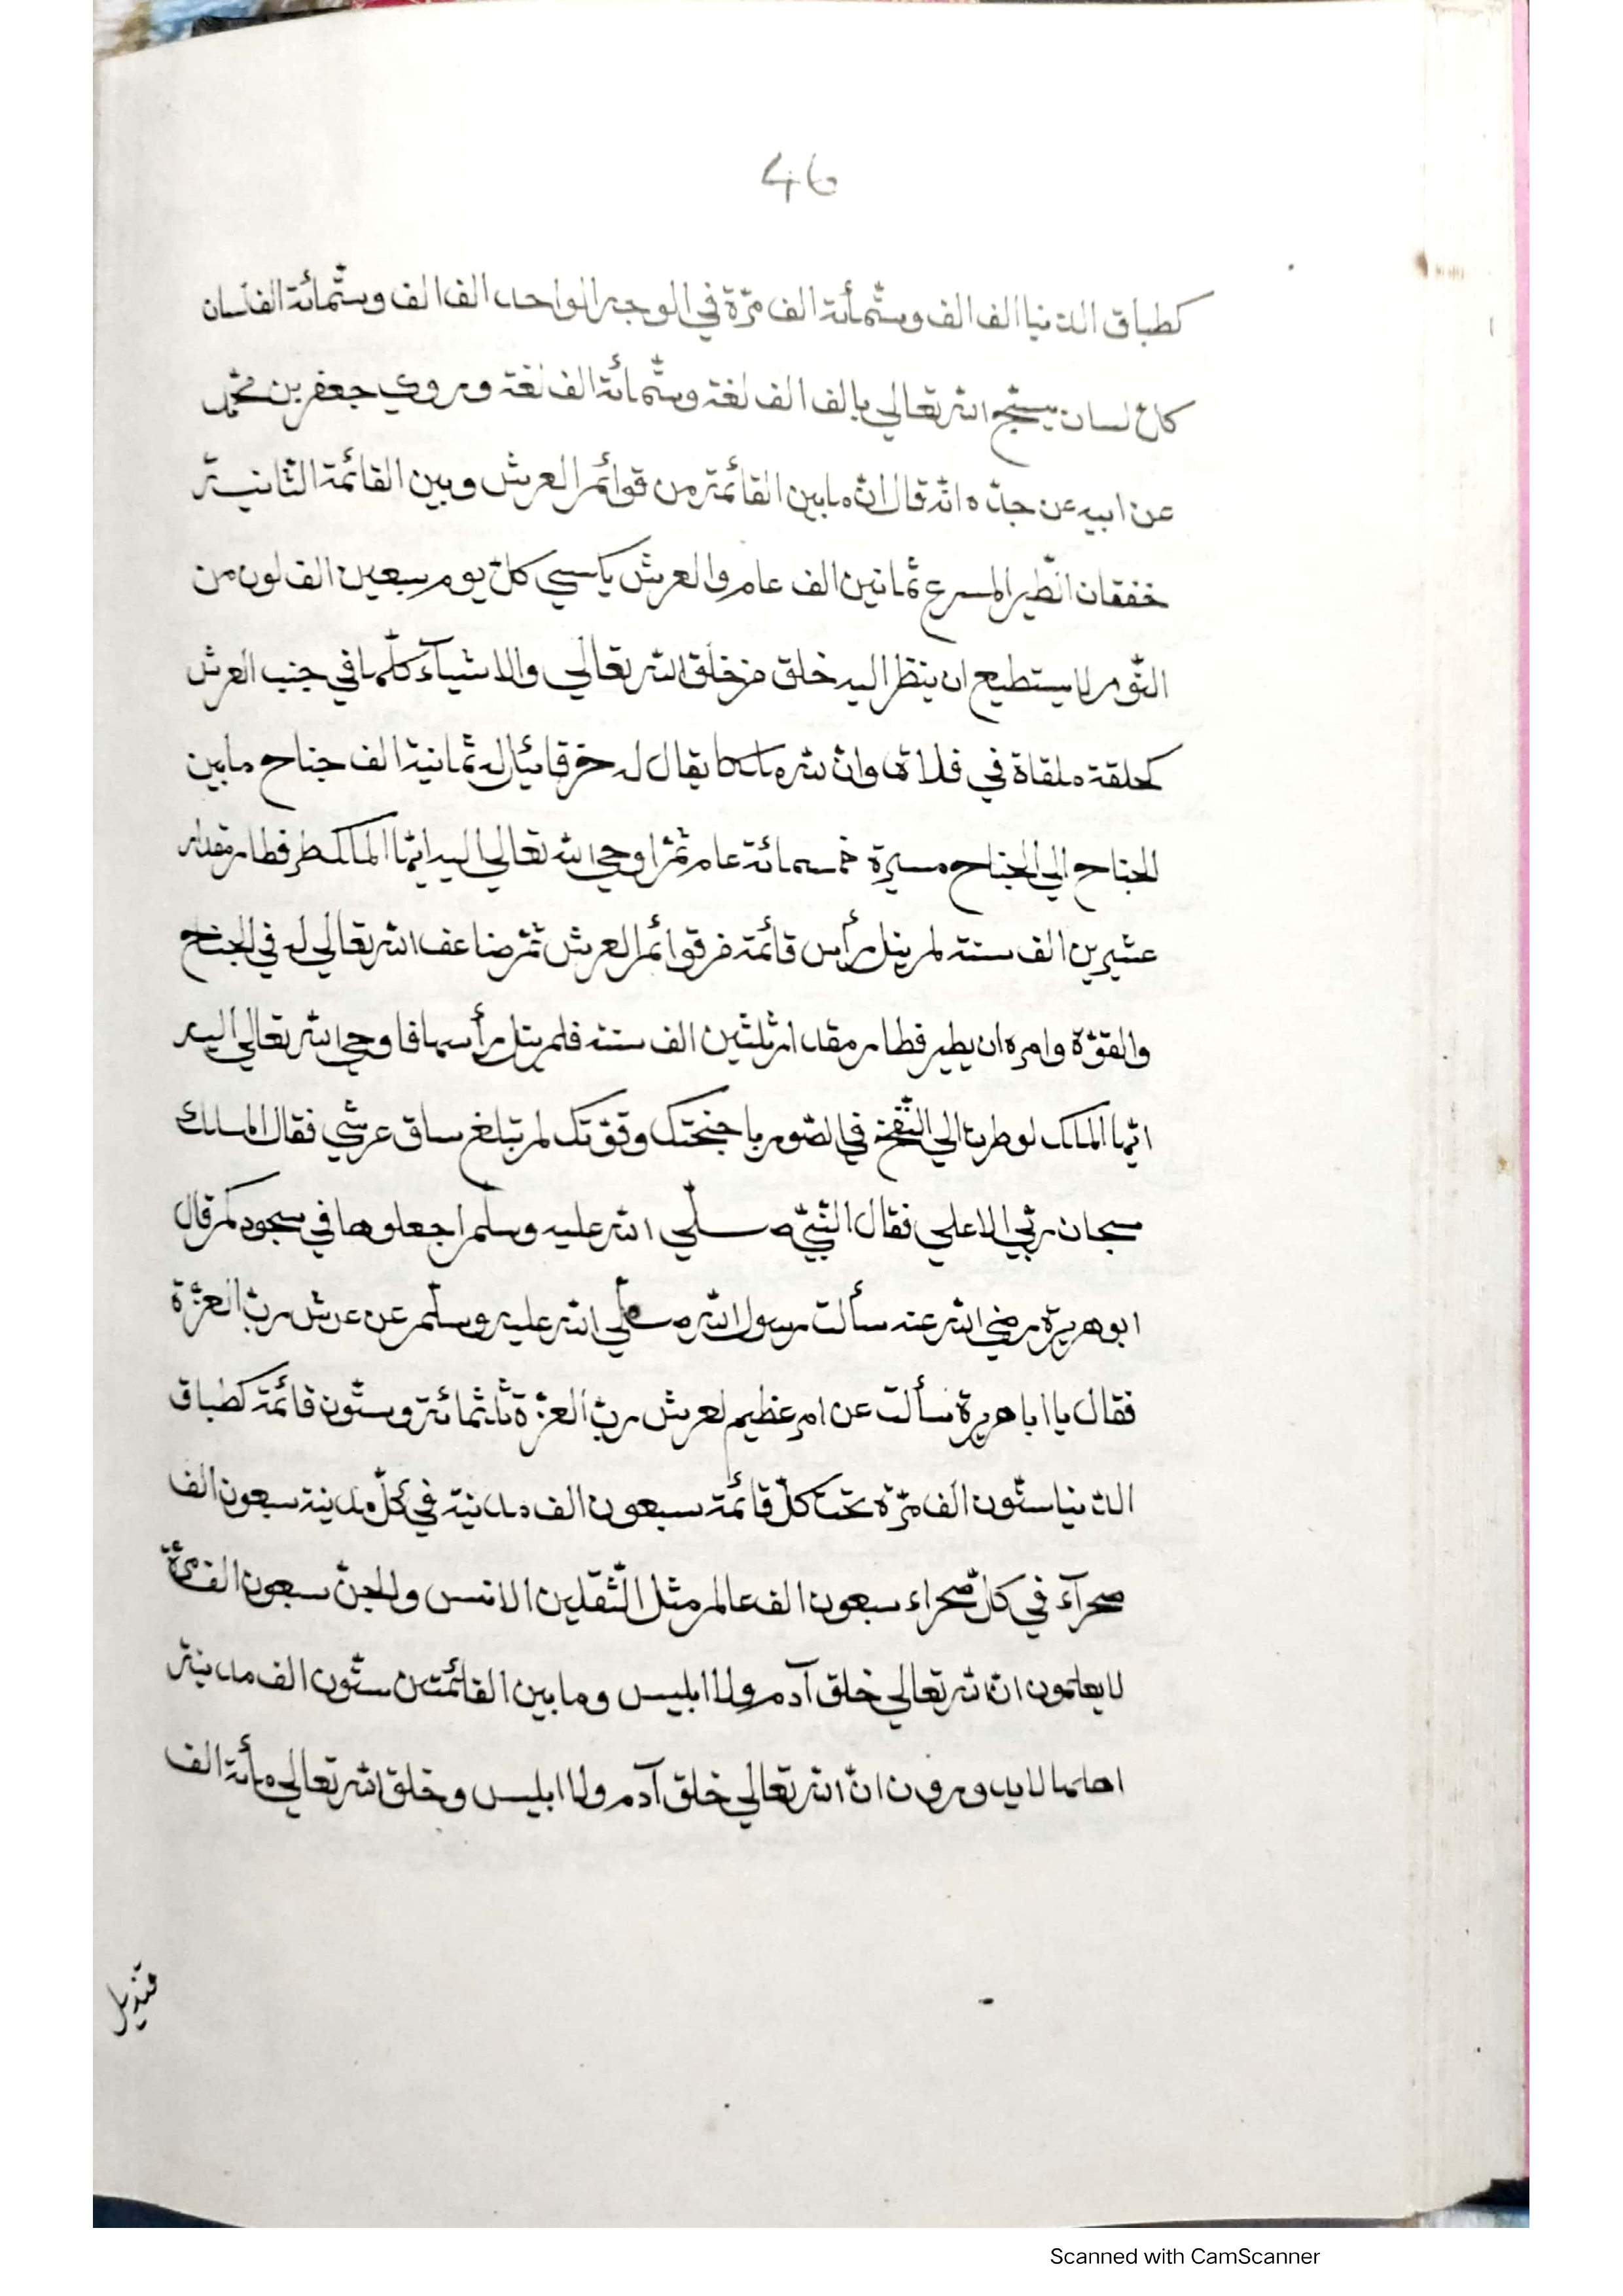 46
كطباق الدّنيا الف الف وستّمأئة الف مرّة في الوجه الواحد الف الف وستّمائة الف لسان
كلّ لسان يسبّح الله تعالي بالف الف لغة وستّمائة الف لغة وروي جعفر بن محمّد
عن ابيه عن جدّه انّه قال انّ ما بين القائمة من قوائم العرش وبين القائمة الثّانية
خفقان الطّير المسرع ثمانين الف عام والعرش يكسي كلّ يوم سبعين الف لون من
النّور لا يستطيع ان ينظر اليه خلق من خلق الله تعالي والاشيآء كلّها في جنب العرش
كحلقة ملقاة في فلاة وانّ لله ملكا يقال له خرقائيل له ثمانية الف جناح ما بين
الجناح الي الجناح مسيرة خمسمائة عام ثمّ اوحي الله تعالي اليه ايّها الملك طر فطار مقدار
عشرين الف سنة لم ينل رأس قائمة من قوائم العرش ثمّ ضاعف الله تعالي له في الجناح
والقوّة وامره ان يطير فطار مقدار ثلثين الف سنة فلم ينل رأسها فاوحي الله تعالي اليه
ايّها الملك لو طرت الي النّفخ في الصّور باجنحتك وقوّتك لم تبلغ ساق عرشي فقال الملك
سبحان ربّي الاعلي فقال النّبيّ صلّي الله عليه وسلّم اجعلوها في سجودكم قال
ابو هريرة رضي الله عنه سألت رسول الله صلّي الله عليه وسلّم عن عرش ربّ العزّة
فقال يا ابا هريرة سألت عن امر عظيم لعرش ربّ العزّة ثلثمائة وستّون قائمة كطباق
الدّنيا ستّون الف مرّة تحت كلّ قائمة سبعون الف مدينة في كلّ مدينة سبعون الف
صحرآء في كلّ صحراء سبعون الف عالم مثل الثّقلين الانس والجنّ سبعون الف مرّة
لا يعلمون انّ الله تعالي خلق آدم ولا ابليس وما بين القائمتين ستّون الف مدينة
اهلها لا يدرون انّ الله تعالي خلق آدم ولا ابليس وخلق الله تعالي مأئة الف
قنديل
Scanned with CamScanner